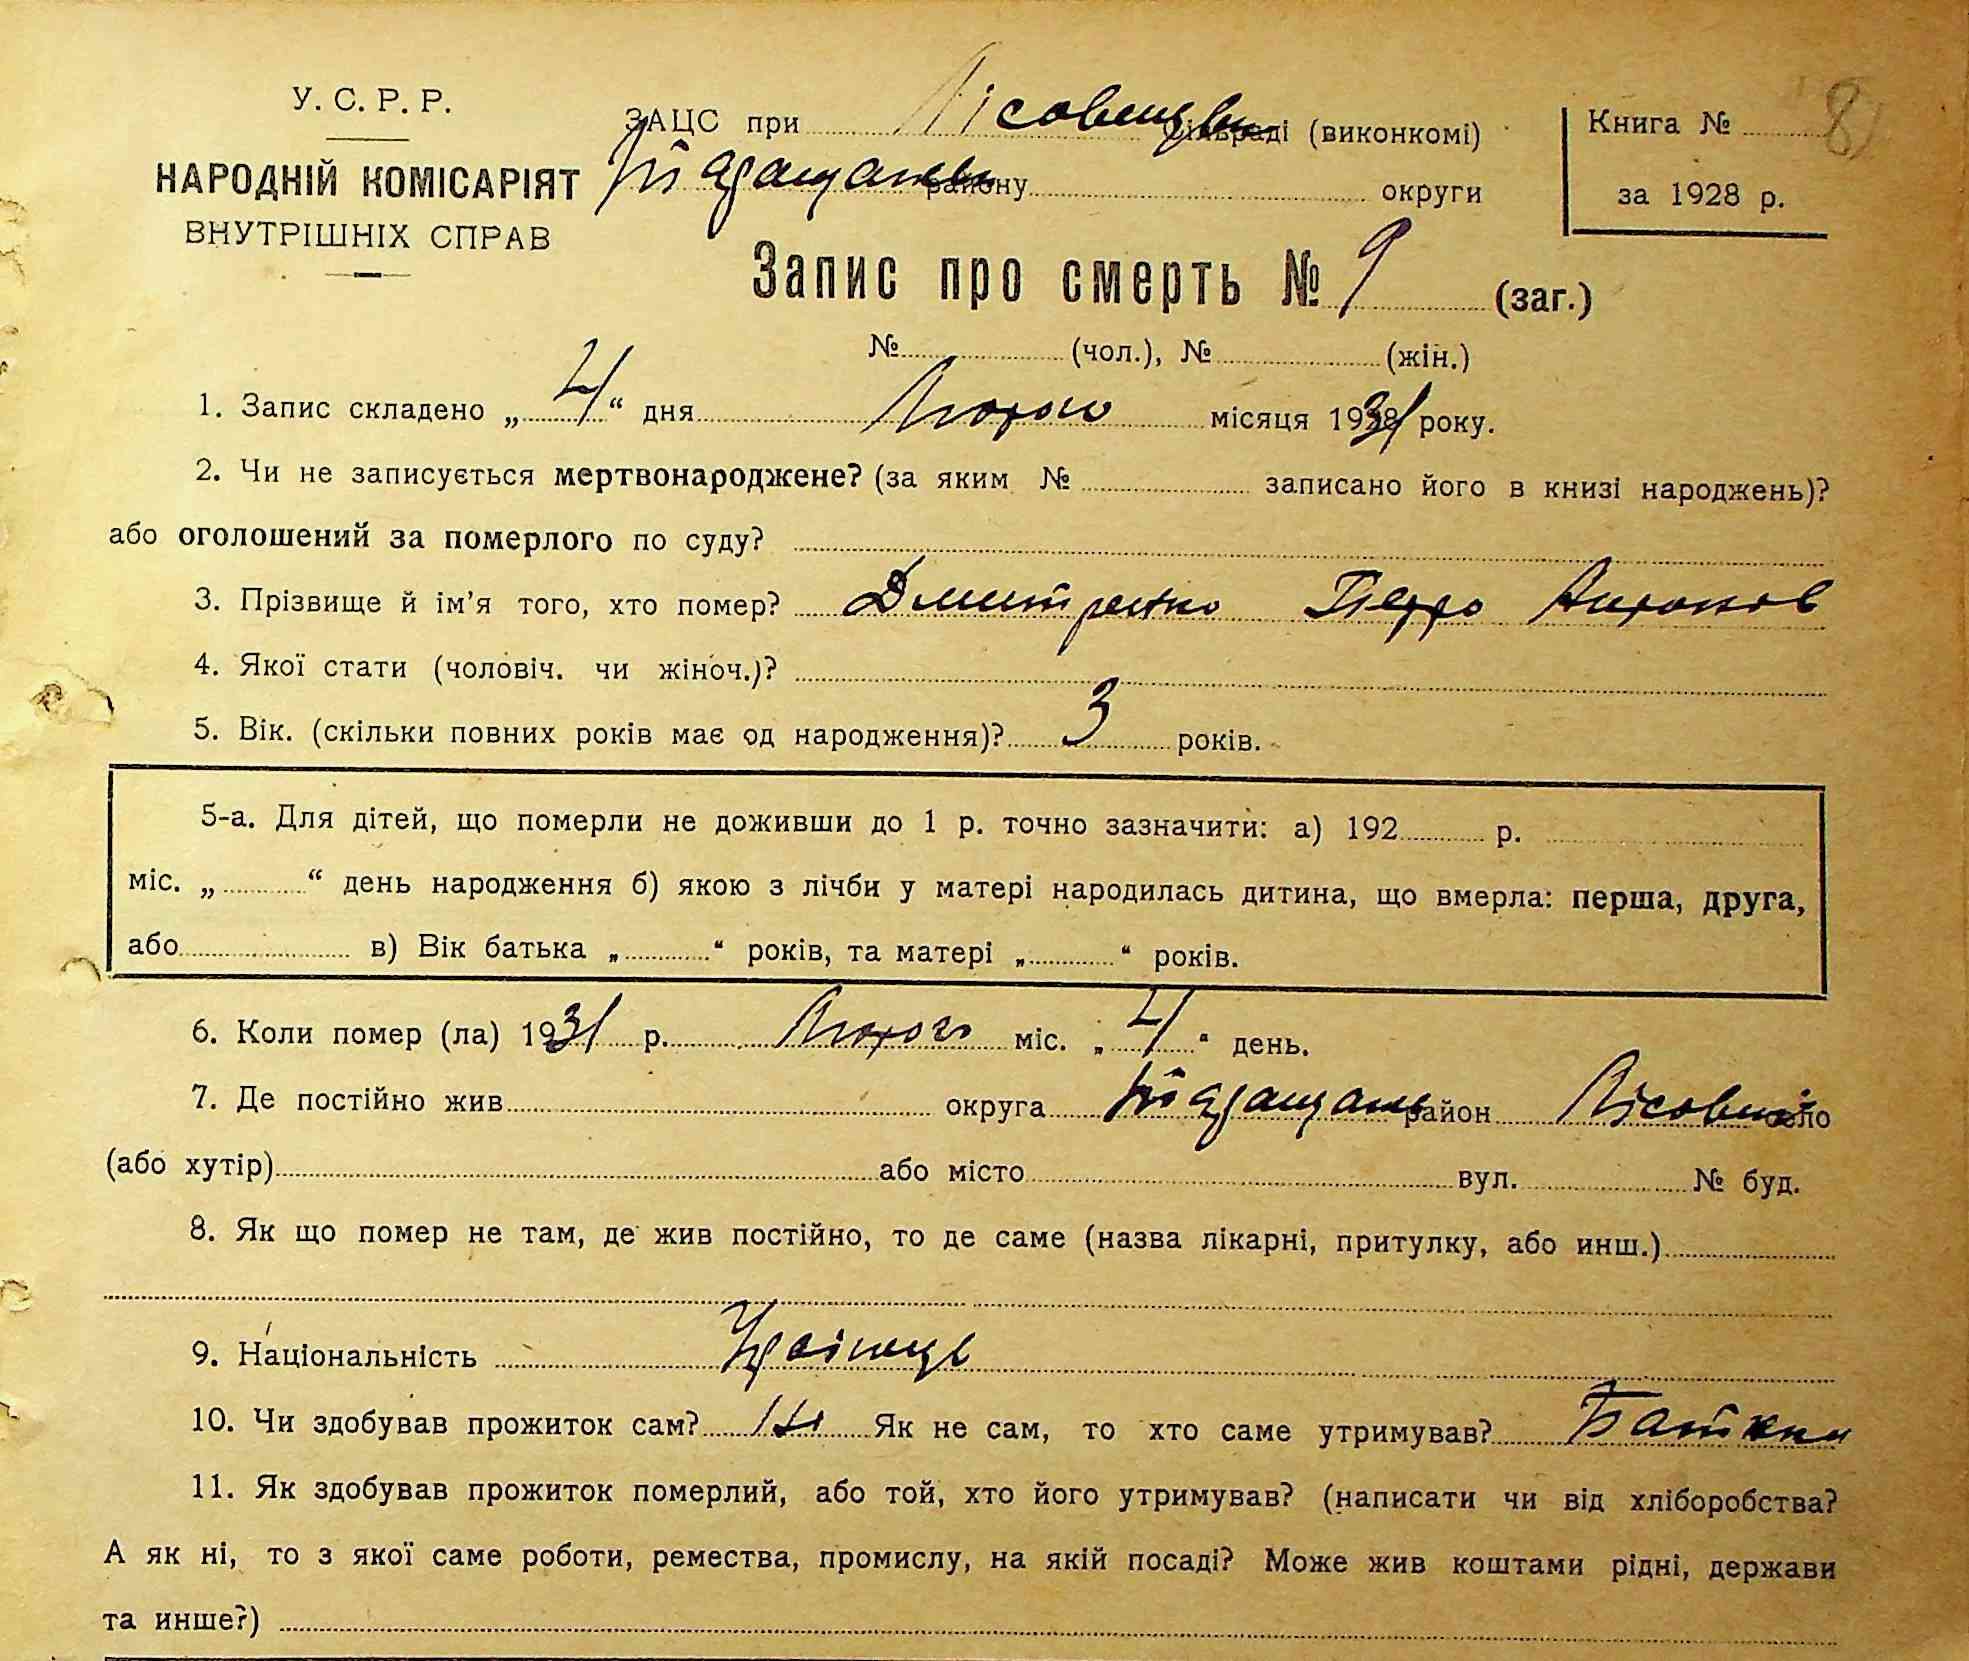 У. С. Р. Р.
НАРОДНІЙ КОМІСАРІЯТ
ВНУТРІШНІХ СПРАВ
ЗАЦС при Лісовецькій сільраді (виконкомі)
Таращанськ району округи
Книга № 8
за 1928 р.
Запис про смерть № 9 (заг.)
№ (чол.), № (жін.)
1. Запис складено „ 4 “ дня Лютого місяця 1931 року.
2. Чи не записується мертвонароджене? (за яким № записано його в книзі народжень)?
або оголошений за померлого по суду?
3. Прізвище й ім’я того, хто помер? Дмитренко Петро Антонов
4. Якої стати (чоловіч. чи жіноч.)?
5. Вік. (скільки повних років має од народження)? 3 років.
5-а. Для дітей, що померли не доживши до 1 р. точно зазначити: а) 192 р.
міс. „ “ день народження б) якою з лічби у матері народилась дитина, що вмерла: перша, друга,
або в) Вік батька „ “ років, та матері „ “ років.
6. Коли помер (ла) 1931 р. Лютого міс. „ 4 “ день.
7. Де постійно жив округа Таращанськ район село
(або хутір) або місто вул. № буд.
8. Як що помер не там, де жив постійно, то де саме (назва лікарні, притулку, або инш.)
9. Національність Украінець
10. Чи здобував прожиток сам? Ні Як не сам, то хто саме утримував? Батьки
11. Як здобував прожиток померлий, або той, хто його утримував? (написати чи від хліборобства?
А як ні, то з якої саме роботи, ремества, промислу, на якій посаді? Може жив коштами рідні, держави
та инше?)